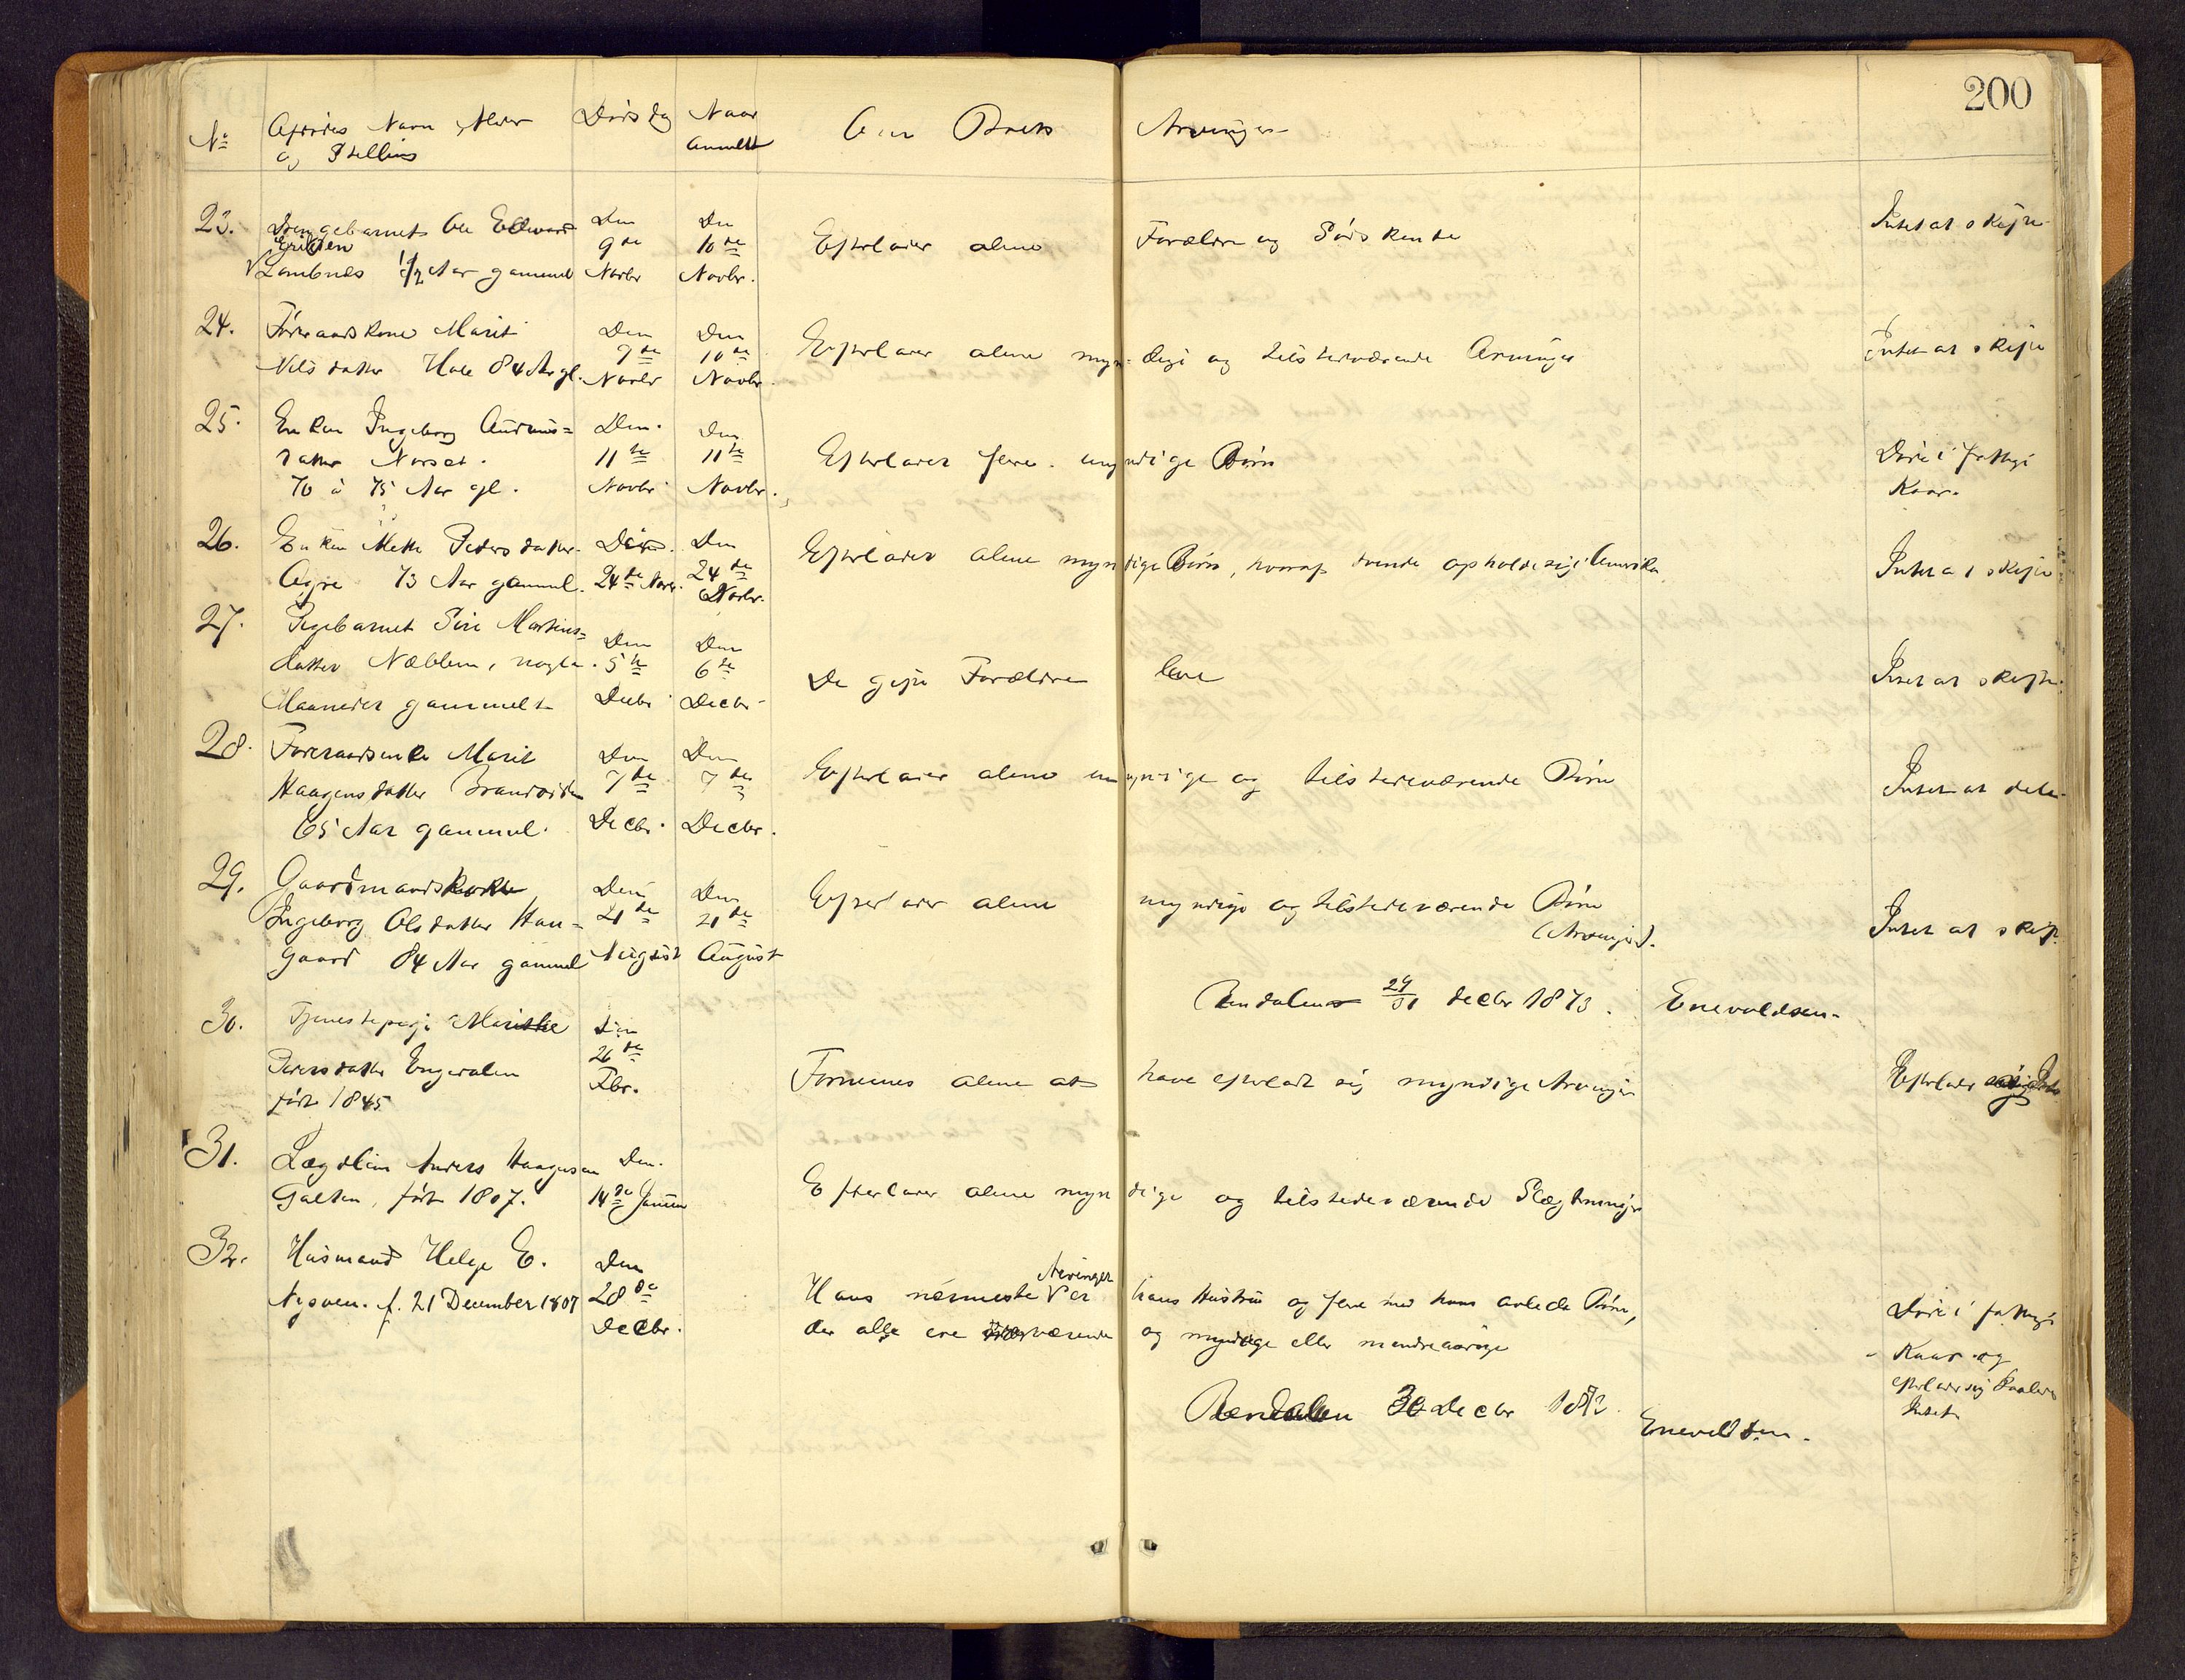 200
No Afdødes Navn, Alder Dødsdag Naar Om Boets Arvinger
og Stilling anmeldt
23. Drengebarnet Ole Edvard Den Den Intet at skifte
Eriksen 9de 10de Efterlader alene Forældre og Sødskende
Lombnes 1 1/2 Aar gammel Novbr Novbr.
24. Føderaadskone Marit Den Den Intet at skifte
Nilsdatter Hole 84 Aar gl. 9de Novbr 10de Novbr. Efterlader alene myndige og tilstedeværende Arvinger
25. Enken Ingeborg Den Den
datter Norset. 11te 11te Efterlader flere myndige Børn Døde i fattige
70 à 75 Aar gl. Novbr Novbr. Kaar.
26. Enken Mette Pedersdatter Den Den Efterlader alene myndige Børn, hvoraf tvende opholde sig i Amerika
73 Aar gammel. 24de Novr. 24de Novbr. Intet at skifte
27. Pigebarnet Siri Martins- Den Den
datter Næbben, nogle 5te 6te De gifte Forældre leve Intet at skifte.
Maaneder gammelt Decbr Decbr
28. Føderaadsenke Marit Den Den
Haagensdatter 7de 7de Efterlader alene myndige og tilstedeværende Børn Intet at dele
65 Aar gammel. Decbr. Decbr.
29. Gaardmandskone Den Den
Ingeborg Olsdatter Hau- 21de 21de Efterlader alene myndige og tilstedeværende Børn
gaard 84 Aar gammel August August (Arvinger). Intet at skift.
Rendalen 29/31 decbr 1873. Enevoldsen
30. Tjenestepige Marithe Den
Pedersdatter Engeralen 26de Fornemes alene at have efterladt sig myndige Arvinger Efterlader Intet
født 1845 Fbr.
31. Lægdslem Anders Haagensen Den
Galten, født 1807. 14de Januar Efterlader alene myndige og tilstedeværende Slægtninge
32. Husmand Helge E. Den
Arvinger
Nysveen. f. 21 December 1807 28de Hans nærmeste er hans Hustru og flere med hans avlede Børn, Døde i fattige
Decbr. der alle ere værende og myndige eller mindreaarige Kaar og
efterlader sig
Rendalen 30 Decbr 1872 Intet
Enevoldsen.